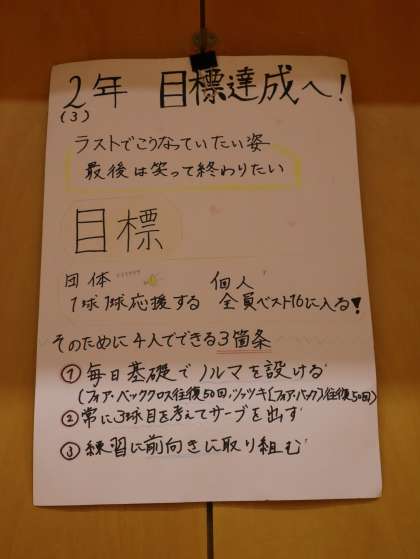 2年 目標達成へ!
(3)
ラストでこうなっていたい姿
最後は笑って終わりたい
目標
団体 個人
1球1球応援する 全員ベスト16に入る!
そのために4人でできる3箇条
① 毎日基礎でノルマを設ける
(フォア・バッククロス往復50回、ツッツキ(フォア・バック)往復50回)
② 常に3球目を考えてサーブを出す
③ 練習に前向きに取り組む